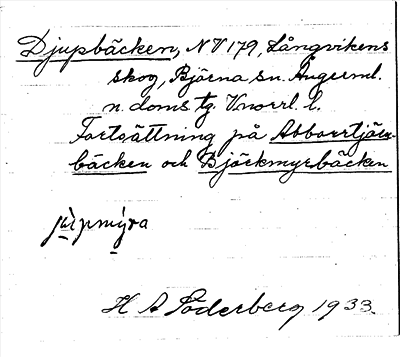 Djupbäcken, NV 179, Långvikens
skog, Björna sn. Ångerml.
n. doms. tg. Vnorrl. l.
Fortsättning på Abborrtjärn-
bäcken och Bjöckmyrbäcken
H A Söderberg 1933.